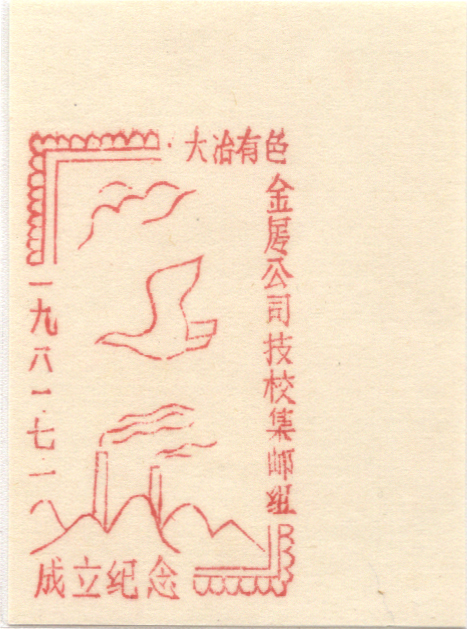 大冶有色
金属公司技校集邮组
一九八一·七·一八
成立纪念